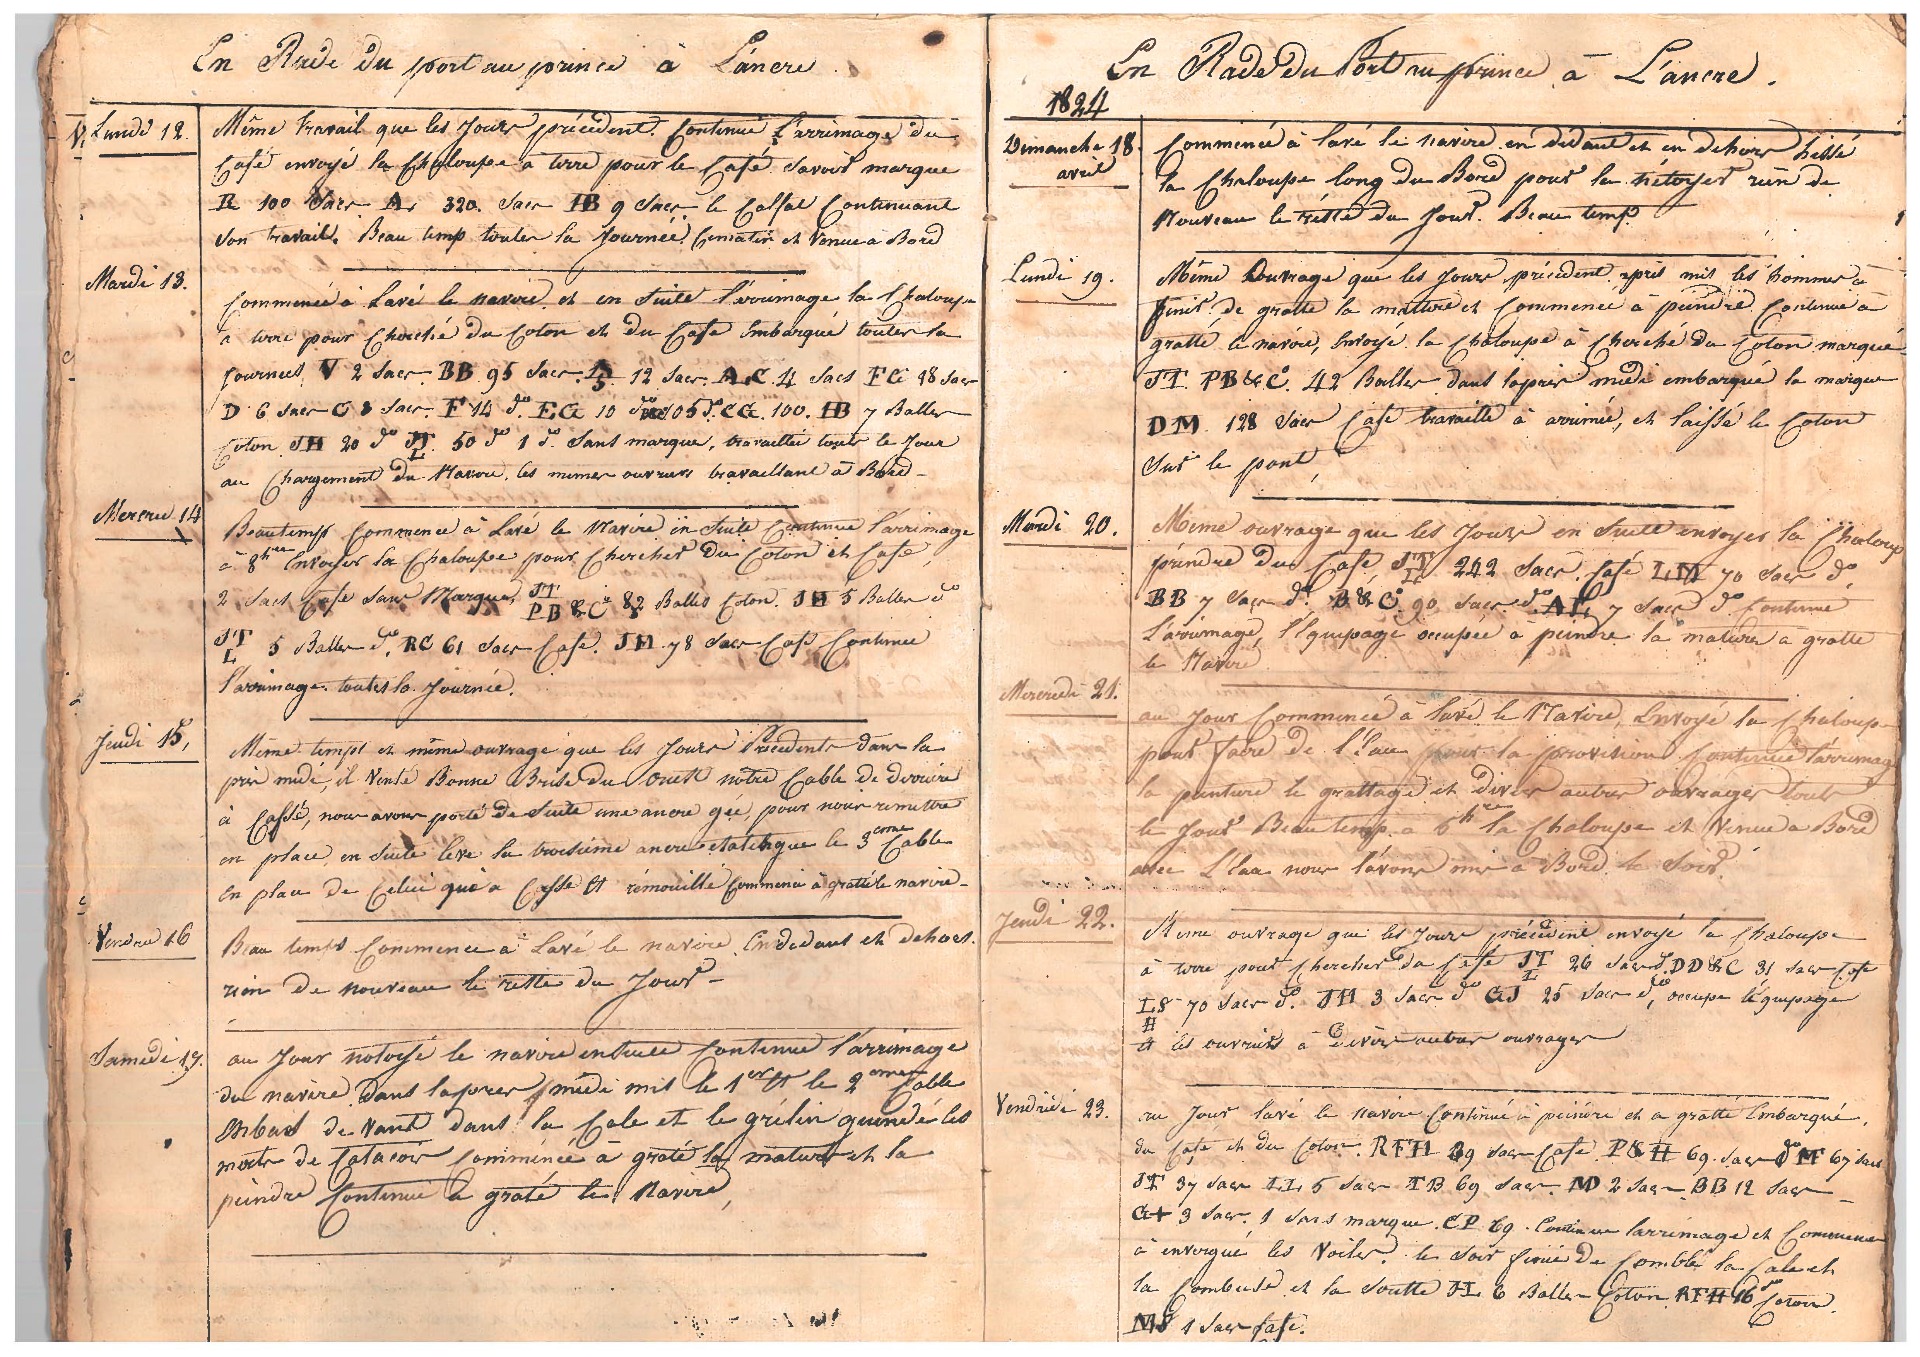 En Rade Du port au prince à L'ancre
Lundi 12. Même travail que les Jours précédent. Continué L'arrimage du
Café envoyé la Chaloupe a terre pour le Café Savoir marque
R 100 Sacs A. 320. Sacs HB 9 Sacs le Calfat Continuant
Son travail. Beau temp toutes la Journée. et Venue a Bord
Mardi 13.
Commencé à Lavé le navire et en Suite l'arrimage la Chaloupe
a terre pour Cherché du Coton et du Café Embarqué toutes la
Journeés V 2 Sacs. BB 95 Sacs. 12 Sacs. A.C. 4 Sacs FG 18 Sacs
D 6 Sacs C 8 Sacs. F 14 do. EG 10 do CG. 100. HB 7 Balles
Coton JH 20 do JT L 50 do 1 do. Sans marque, travaillée touts le Jour
au Chargement du Navire, les memes ouvriers travaillant à Bord
Mercre 14
Beautemps Commencé à Lavé le Navire en Suite Continue l'arrimage
à 8h Envoyer la Chaloupe pour Chercher Du Coton et Café,
2 Sacs Café Sans Marque, JT PB&C 82 Balles Coton. JH 5 Balles do
JT L 5 Balles do, RC 61 Sacs Café. JH 78 Sacs Café Continué
l'arrimage toutes la Journée.
Jeudi 15,
Même temps et même ouvrage que les Jours Précedents dans la
pres midi, il Venté Bonne Brise Du ouest notre Cable de derriere
à Cassé, nous avons porté De Suite une ancre pour nous remettre
en place, en Suite levé la troisieme ancre etalingue le 3eme Cable
En place de Celui qui a Cassé Et rémouillé Commencé à gratté le navire
Vendre 16
Beau temps Commence à Lavé le navire Endedans et dehors.
rien De nouveau le reste du Jour
Samedi 17.
au Jour netoyé le navire ensuite Continué l'arrimage
du navire. Dans lapres midi mit le 1er Et le 2eme Cable
De Vant dans la Cale et le grélin les
de Commencé à graté la mature et la
peindre Continue à graté le Navire,
En Rade Du Port au prince à L'ancre.
1824
Dimanche 18. avril
Commencé à lavé le navire en dédant et en dehors hissé
la Chaloupe long du Bord pour la nétoyer rien de
Nouveau le reste du Jour. Beau temp
Lundi 19.
Même Louvrage que les Jours précedent apris mit les hommes à
finir de gratté la mature et Commence à peindre Continue à
gratté le navire, Envoyé la Chaloupe à Cherché du Coton marqué
JT. PB&C. 42 Balles dans lapres midi embarqué la marque
DM. 128 Sacs Café travaille à arrimé, et laissé le Coton
Sur le pont,
Mardi 20.
Même ouvrage que les Jours en Suite envoyer la Chaloup
préndre du Café, JT L 242 Sacs. Café LM 70 Sacs do,
BB 7 Sacs do. B&C. 90 Sacs do. AL 7 Sacs do Continue
L'arrimage, l'Equipage occupée à peindre la mature à gratté
le Navire
Mercredi 21.
au Jour Commencé à lavé le Navire, Envoyé la Chaloup
pour faire de l'Eau pour la provision Continué l'arrimag
la peinture le grattage et divers autres ouvrages touts
le Jour Beau temp. a 6h la Chaloupe et Venue a Bord
avec L'Eau nous l'avons mis à Bord le Soir.
Jeudi 22.
Même ouvrage que les Jours précédent envoyé la Chaloupe
à terre pour Chercher du Café JT L 26 Sacs do. DD&C 31 Sacs Café
LS H 70 Sacs do. JH 3 Sacs do GJ 25 Sacs do, occupe léquipage
et les ouvriers à divers autres ouvrages
Vendrédi 23.
au Jour lavé le navire Continué à peindre et a gratté Embarqué,
du Café et du Coton. RFH 29 Sacs Café P&H 69. Sacs do M 67 Sacs
JT 37 Sacs LL 5 Sacs TB 69 Sacs. MD 2 Sacs. BB 12 Sacs
G+ 3 Sacs. 1 Sans marque. CP 69. Continue larrimage et Commence
à envergué les Voiles. le Soir finie De Comblé la Cale et
la Cambuse et la Soutte JL 6 Balles Coton. RFH 16 do Coton.
MS 1 Sacs Café.